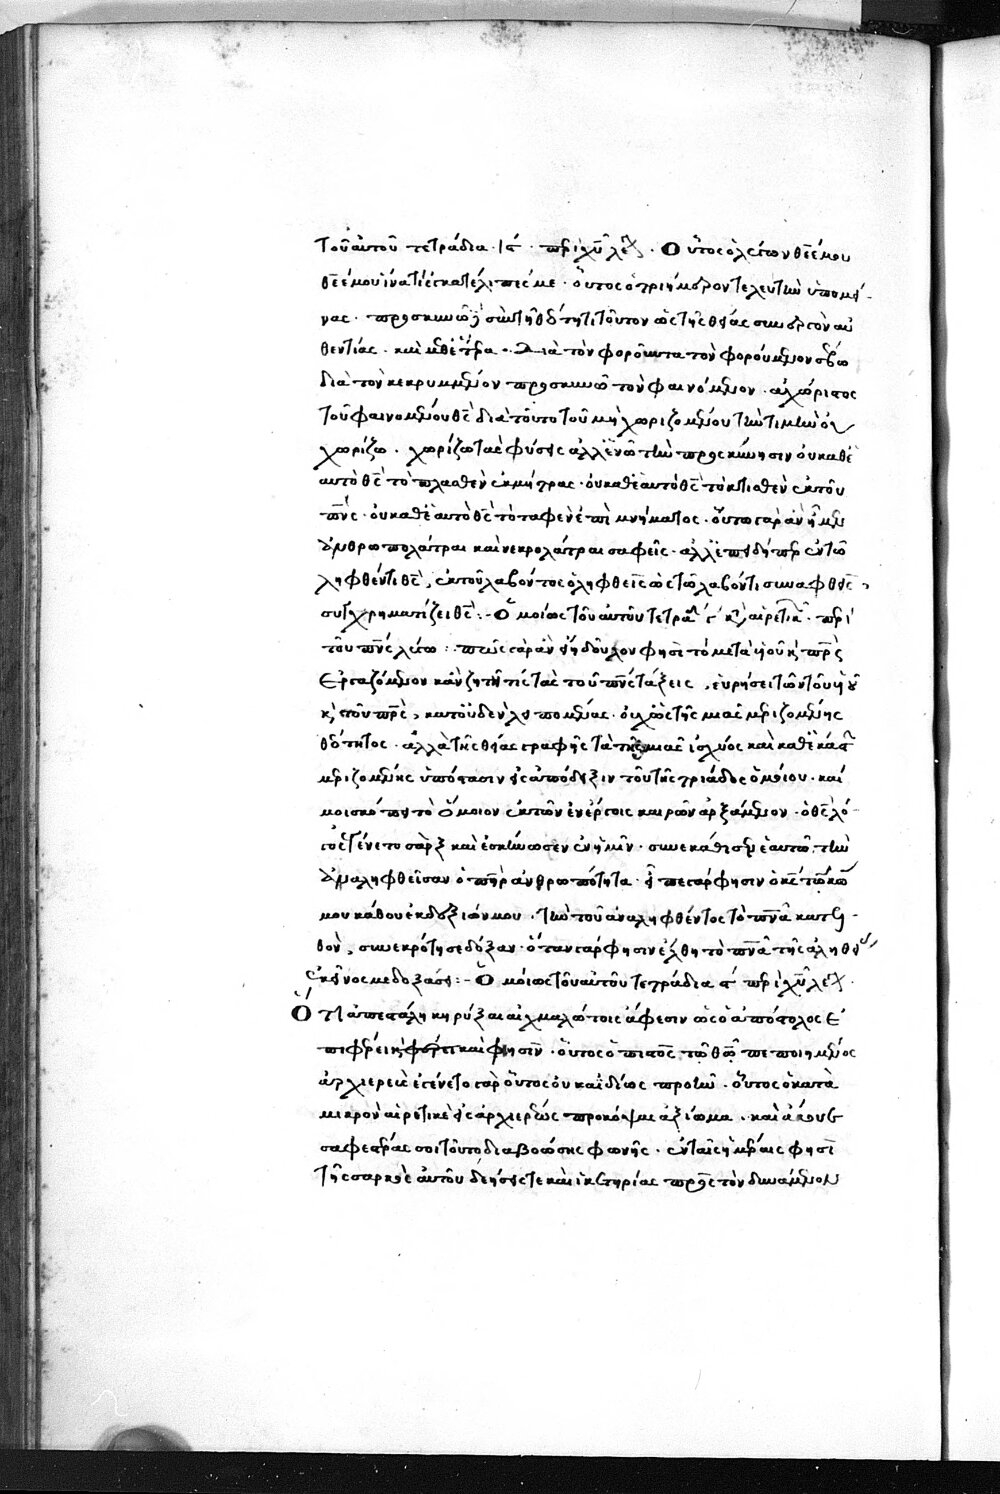 τοῦ αὐτοῦ τετράδια ιϛ περὶ χῦ λέγ. Οὗτος ὁ λέγων θεέ μου
θεέ μου ἱνατί ἐγκατέλιπές με. οὗτος ὁ τριήμερον τελευτὴν ὑπομεί-
νας. προσκυνῶ δὲ σὺν τῆ θεότητι τοῦτον ὡς τῆς θείας συνεργὸν αὐ
θεντίας. καὶ μεθ' ἕτερα. Διὰ τὸν φοροῦντα τὸν φορούμενον σέβω
διὰ τὸν κεκρυμμένον προσκυνῶ τὸν φαινόμενον. ἀχώριστος
τοῦ φαινομένου θς διὰ τοῦτο τοῦ μὴ χωριζομένου τὴν τιμὴν οὐ
χωρίζω. χωρίζω τὰς φύσεις ἀλλ' ἑνῶ τὴν προσκύνησιν οὐ καθ' ἑ
αυτὸ θς τὸ πλασθὲν ἐκ μήτρας. οὐ καθ' ἑαυτὸ θς τὸ κτισθὲν ἐκ τοῦ
πνς. οὐ καθ' ἑαυτὸ θς τὸ ταφὲν ἐπὶ μνήματος. οὕτω γὰρ ἂν ἦμεν
ἀνθρωπολάτραι καὶ νεκρολάτραι σαφεῖς. ἀλλ' ἐπειδήπερ ἐν τῶ
ληφθέντι θς, ἐκ τοῦ λαβόντος ὁ ληφθεὶς ὡς τῶ λαβόντι συναφθεὶς,
συγχρηματίζει θς:- Ὁμοίως τοῦ αὐτοῦ τετρα ϛ κ αἱρετικ. περὶ
τοῦ πνς λέγω: πῶς γὰρ ἂν εἴη δοῦλον φησὶ τὸ μετὰ υἱοῦ κ πρς
ἐργαζόμενον κἂν ζητῆ τίς τὰς τοῦ πνς τάξεις, εὑρήσει τῶν τοῦ υἱοῦ
κ τοῦ πρς, κατ' οὐδὲν λειπομένας. οὐχ ὡς τῆς μιᾶς μεριζομένης
θεότητος. ἀλλὰ τῆς θείας γραφῆς τὰ τῆς μιᾶς ἰσχύος καὶ καθ' ἑκάστ
μεριζομένης ὑπόστασιν εἰς ἀπόδειξιν τοῦ τῆς τριάδος ὁμοίου. καί
μοι σκόπει τὸ ὅμοιον ἐκ τῶν ἐνέργοις καιρῶν ἀρξάμενον. ὁ θς λό-
γος ἐγένετο σὰρξ καὶ ἐσκήνωσεν ἐν ἡμῖν. συνεκάθισεν ἑαυτῶ τὴν
ἀναληφθεῖσαν ὁ πηρ ἀνθρωπότητα. εἶπε γάρ φησιν ὁ κς τῶ κω
μου κάθου ἐκ δεξιῶν μου. τὴν τοῦ ἀναληφθέντος τὸ πνα κατελ-
θὸν, συνεκρότησε δόξαν. ὅταν γάρ φησιν ἔλθη τὸ πνα τῆς ἀληθείας,
ἐκεῖνος με δοξάσει:- Ὁμοίως τοῦ αὐτοῦ τετράδια ϛ περὶ χῦ λέγ.
Ὅτι ἀπεστάλη κηρύξαι αἰχμαλώτοις ἄφεσιν ὡς ὁ ἀπόστολος ἐ
πιφέρει καὶ φησὶν. οὗτος ὁ πιστὸς τῶ θω πεποιημένος
ἀρχιερεὺς ἐγένετο γὰρ οὗτος οὐκ ἀϊδίως προῆν. οὗτος ὁ κατὰ
μικρὸν αἱρετικὲ εἰς ἀρχιερέως προκόψας ἀξίωμα. καὶ ἄκουε
σαφεστέρας σοι τοῦτο διαβοώσης φωνῆς. ἐν ταῖς ἡμέραις φησὶ
τῆς σαρκὸς αὐτοῦ δεήσεις τε καὶ ἱκετηρίας πρὸς τὸν δυνάμενον